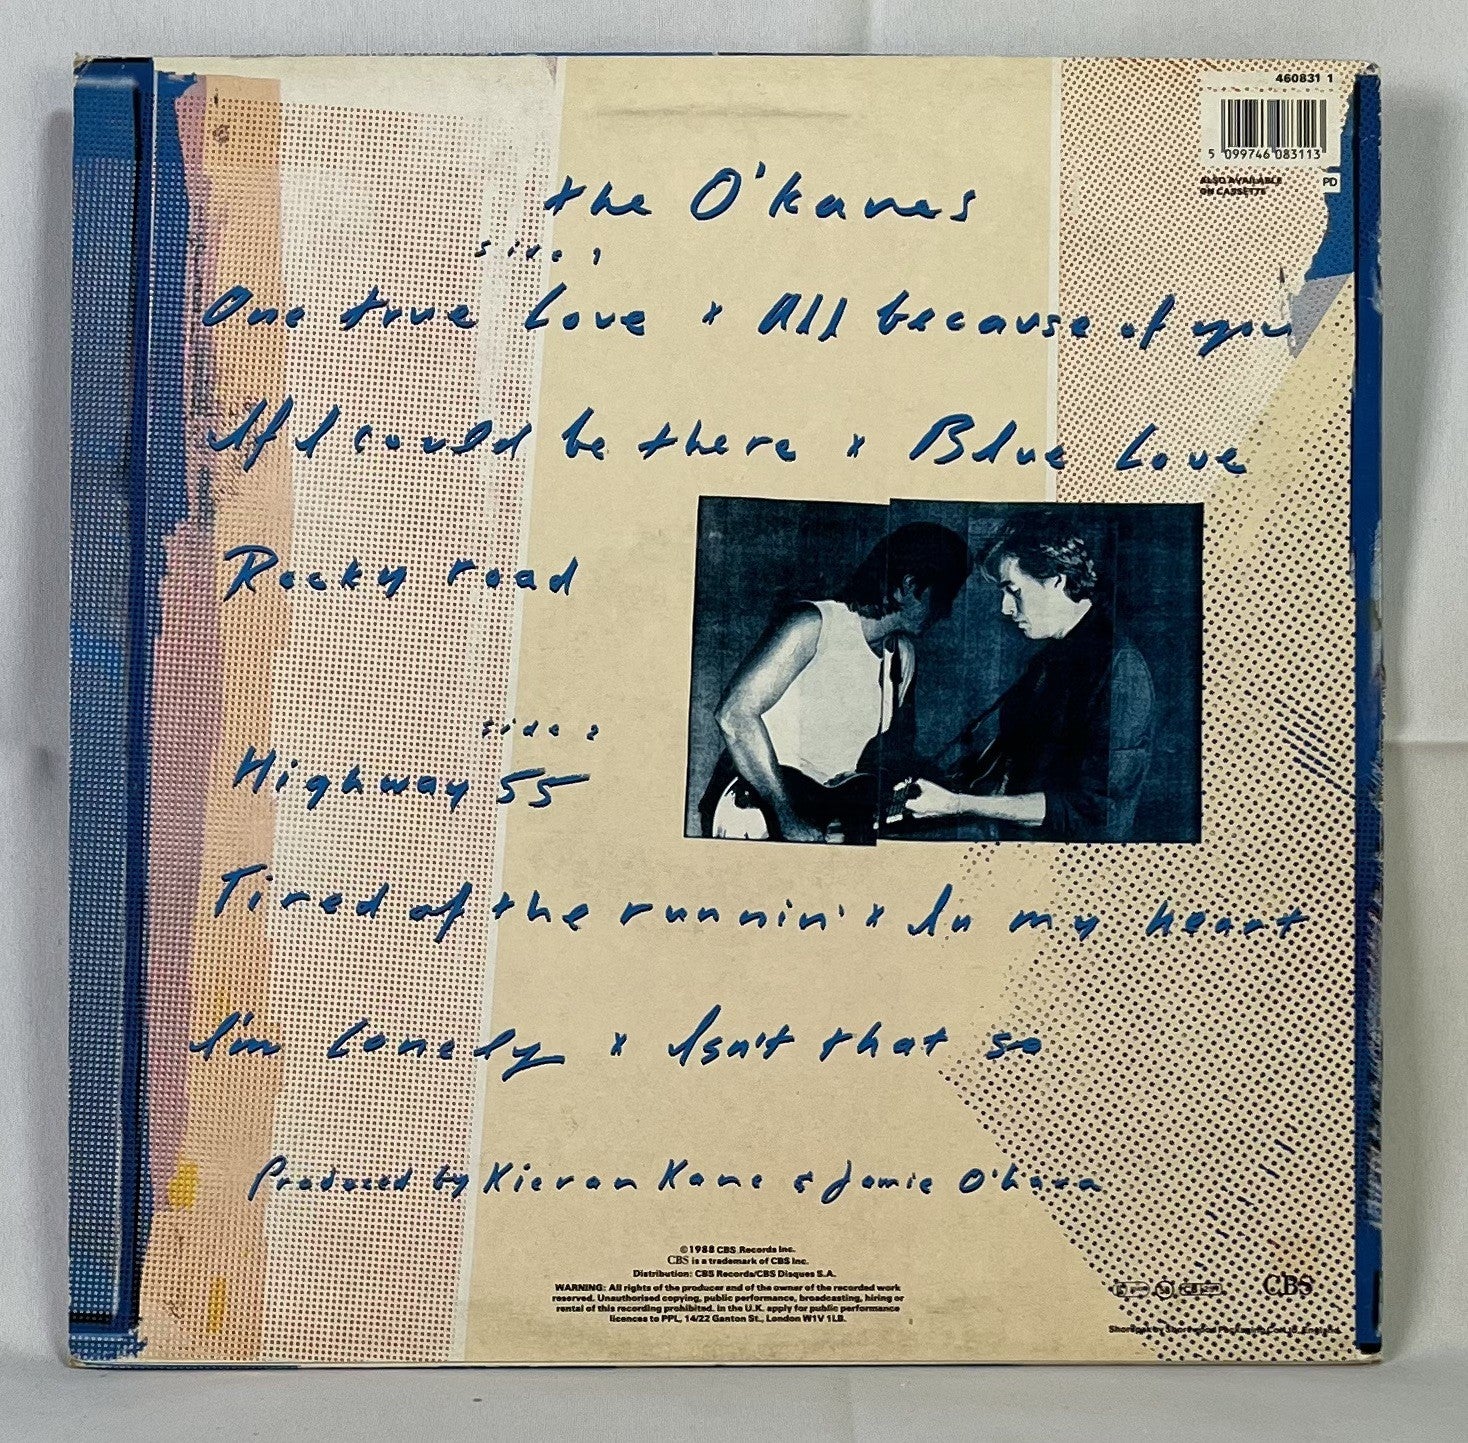 460831 1
5 099746 083113
ALSO AVAILABLE
ON CASSETTE
PD
the O'kanes
side 1
One true Love x All because of you
If I could be there x Blue Love
Rocky road
side 2
Highway 55
Tired of the runnin' x In my heart
I'm Lonely x Isn't that so
Produced by Kieran Kane & Jamie O'hara
©1988 CBS Records Inc.
CBS is a trademark of CBS Inc.
Distribution: CBS Records/CBS Disques S.A.
WARNING: All rights of the producer and of the owner of the recorded work
reserved. Unauthorised copying, public performance, broadcasting, hiring or
rental of this recording prohibited. In the U.K. apply for public performance
licences to PPL, 14/22 Ganton St., London W1V 1LB.
CBS